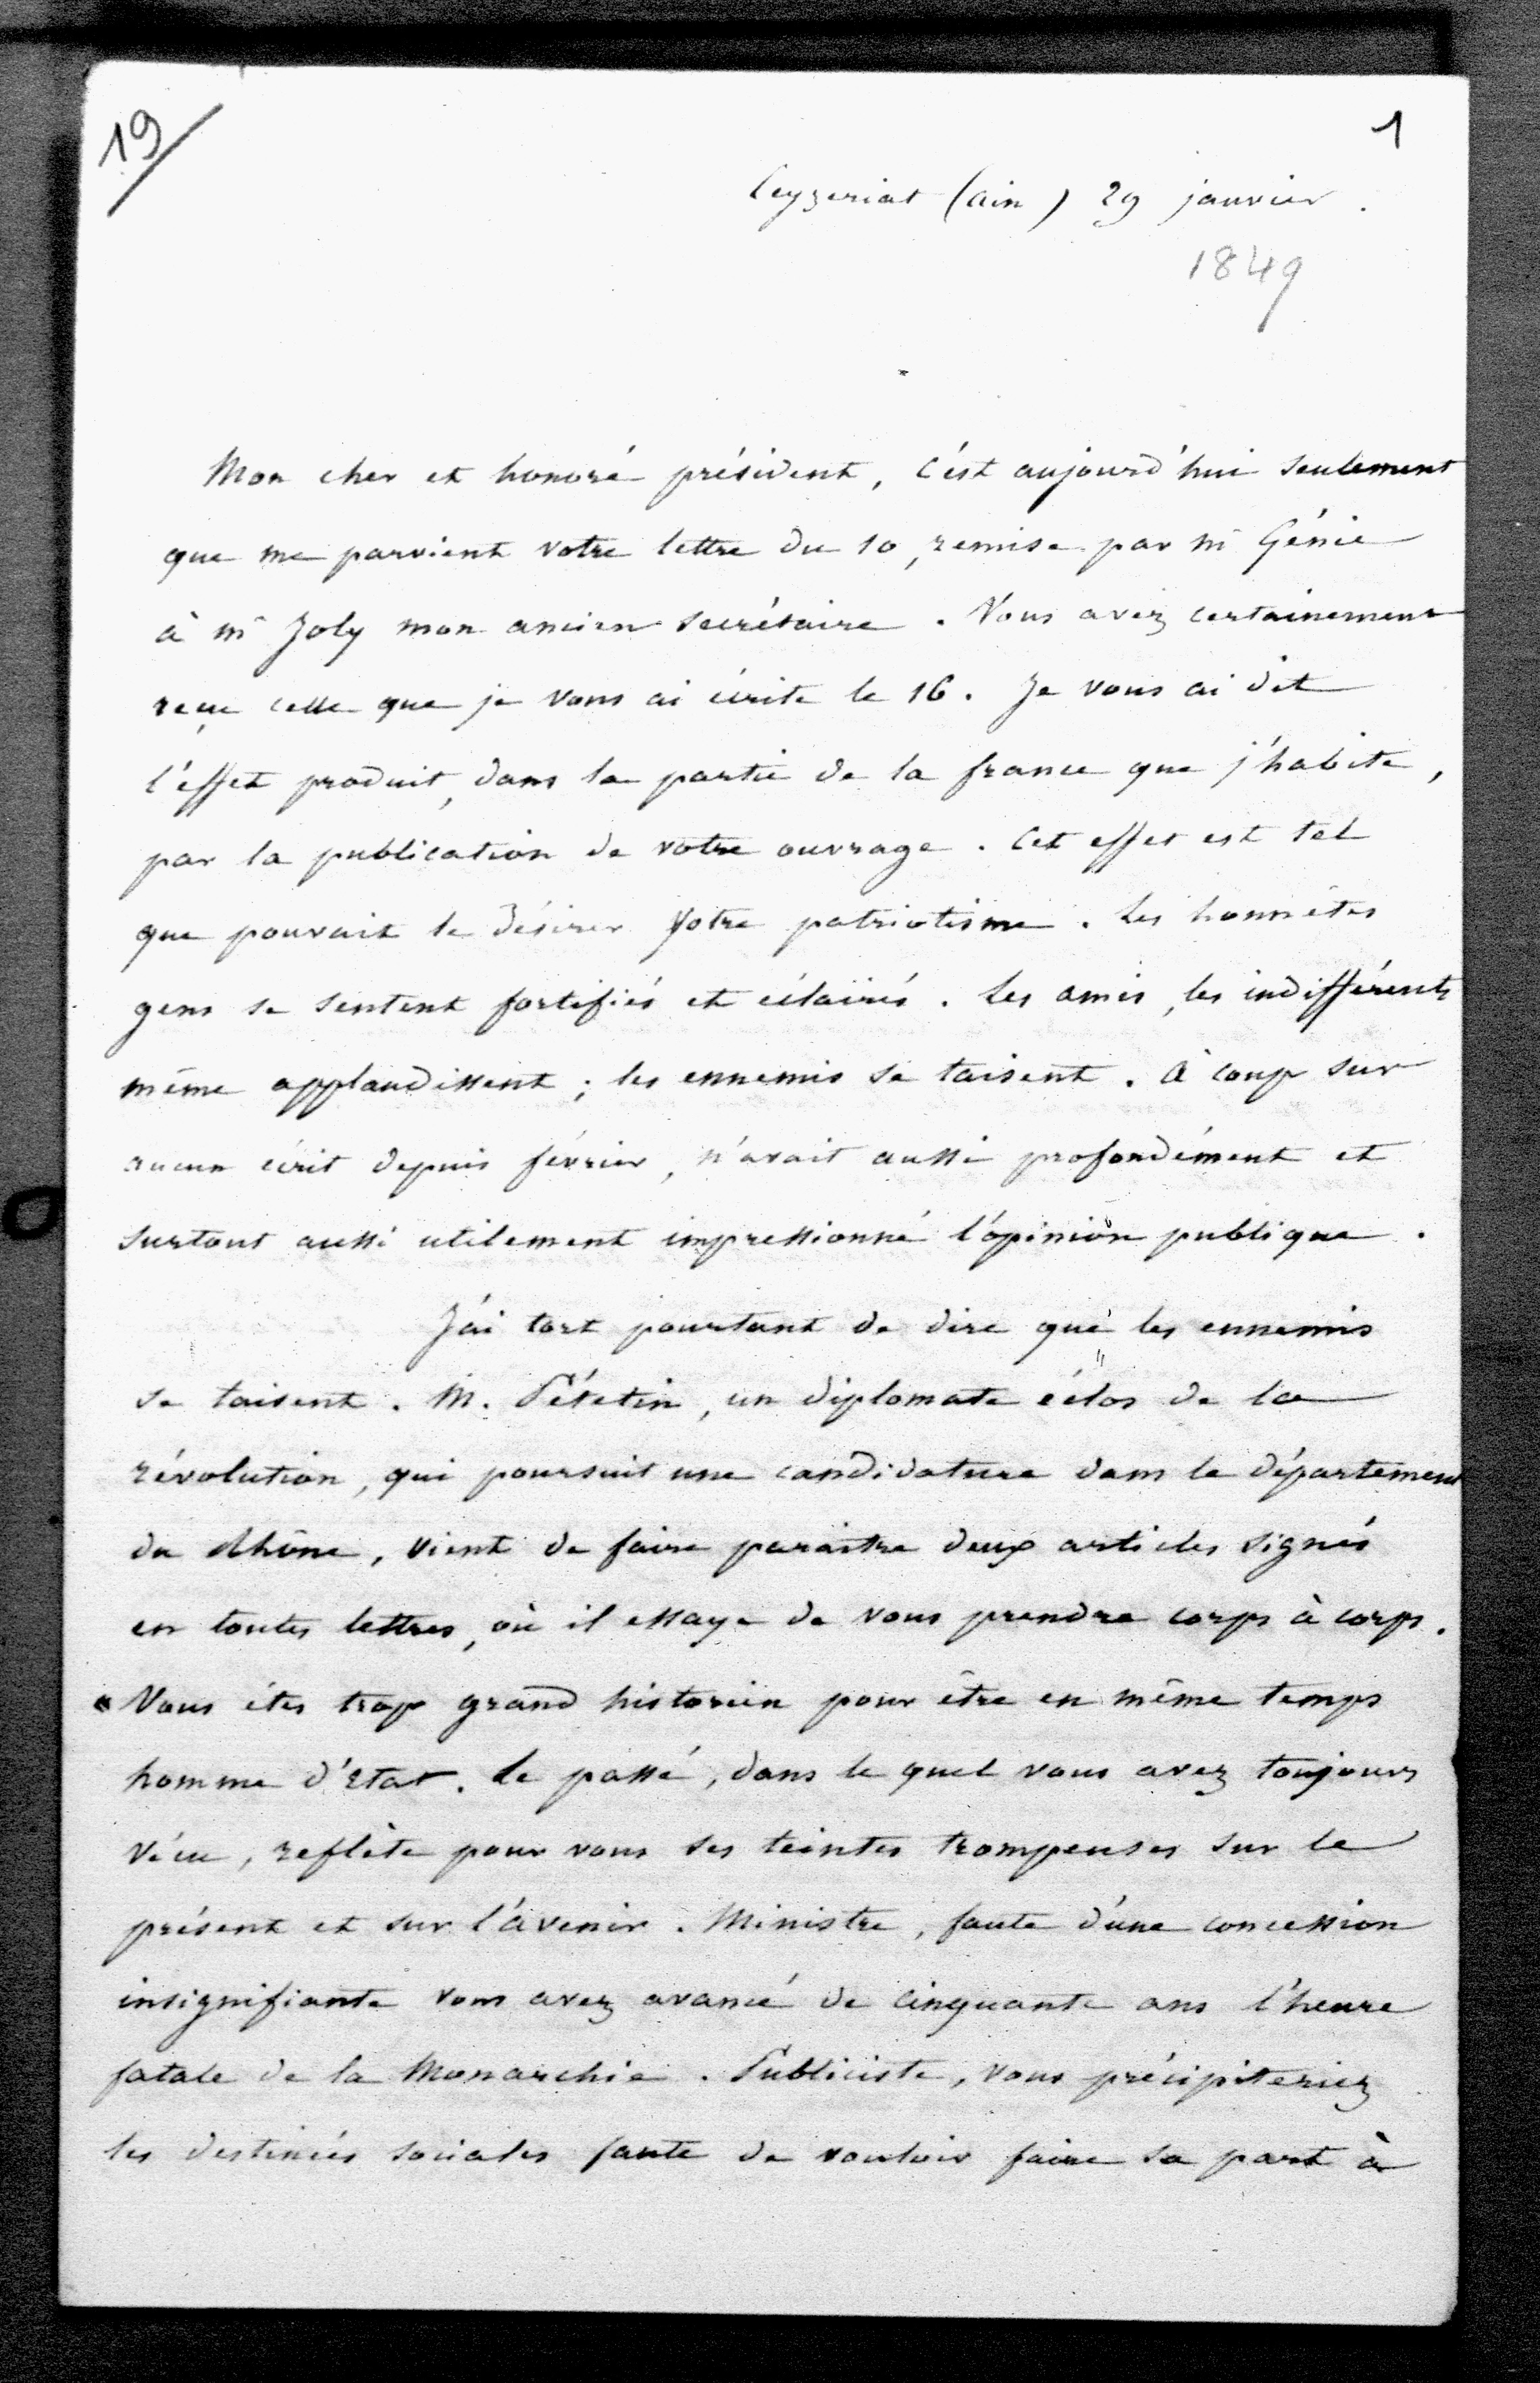 19
1
Ceyzeriat (ain) 29 janvier.
1849
Mon cher et honoré président, c'est aujourd'hui seulement
que me parvient votre lettre du 10, remise par Mr Génie
à Mr Joly mon ancien secrétaire. Vous avez certainement
reçu celle que je vous ai écrite le 16. Je vous ai dit
l'effet produit, dans la partie de la france que j'habite,
par la publication de votre ouvrage. Cet effet est tel
que pouvait le désirer votre patriotisme. Les honnêtes
gens se sentent fortifiés et éclairés. Les amis, les indifférents
même applaudissent; les ennemis se taisent. à coup sur
aucun écrit depuis février, n'avait aussi profondément et
surtout aussi utilement impressionné l'opinion publique.
J'ai tort pourtant de dire que les ennemis
se taisent. M. Pétetin, un diplomate éclos de la
révolution, qui poursuit une candidature dans le département
du Rhône, vient de faire paraitre deux articles signés
en toutes lettres, où il essaye de vous prendre corps à corps.
"Vous êtes trop grand historien pour être en même temps
homme d'Etat. Le passé, dans le quel vous avez toujours
vécu, reflète pour vous ses teintes trompeuses sur le
présent et sur l'avenir. Ministre, faute d'une concession
insignifiante vous avez avancé de cinquante ans l'heure
fatale de la Monarchie. Publiciste, vous précipiteriez
les destinées sociales faute de vouloir faire sa part à